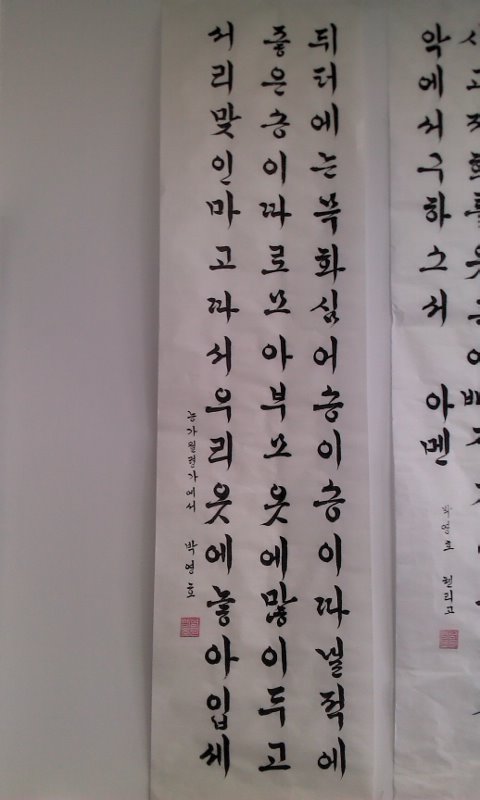 악에서구하소서 아멘
뒤터에는목화심어송이송이따낼적에
좋은송이따로모아부모옷에많이두고
서리맞인마고따서우리옷에놓아입세
농가월령가에서 박영호